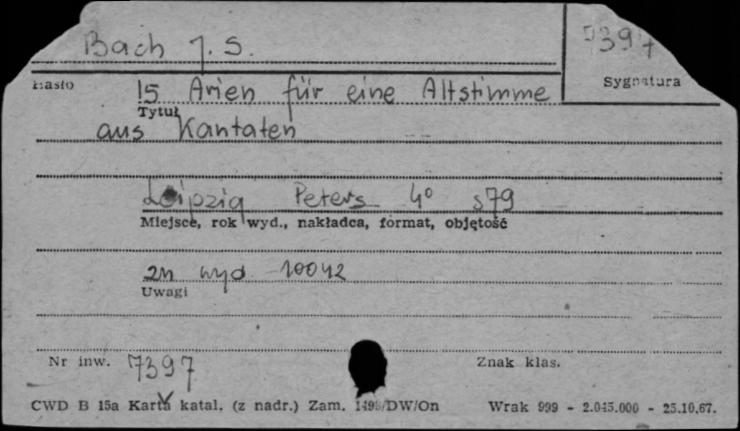 Bach J. S.
7397
Hasło
Sygnatura
15 Arien für eine Altstimme
Tytuł
aus Kantaten
Leipzig Peters 4° s79
Miejsce, rok wyd., nakładca, format, objętość
zn wyd. 10042
Uwagi
Nr inw. 7397
Znak klas.
CWD B 15a Karta katal. (z nadr.) Zam. 1499/DW/On
Wrak 999 - 2.045.000 - 25.10.67.